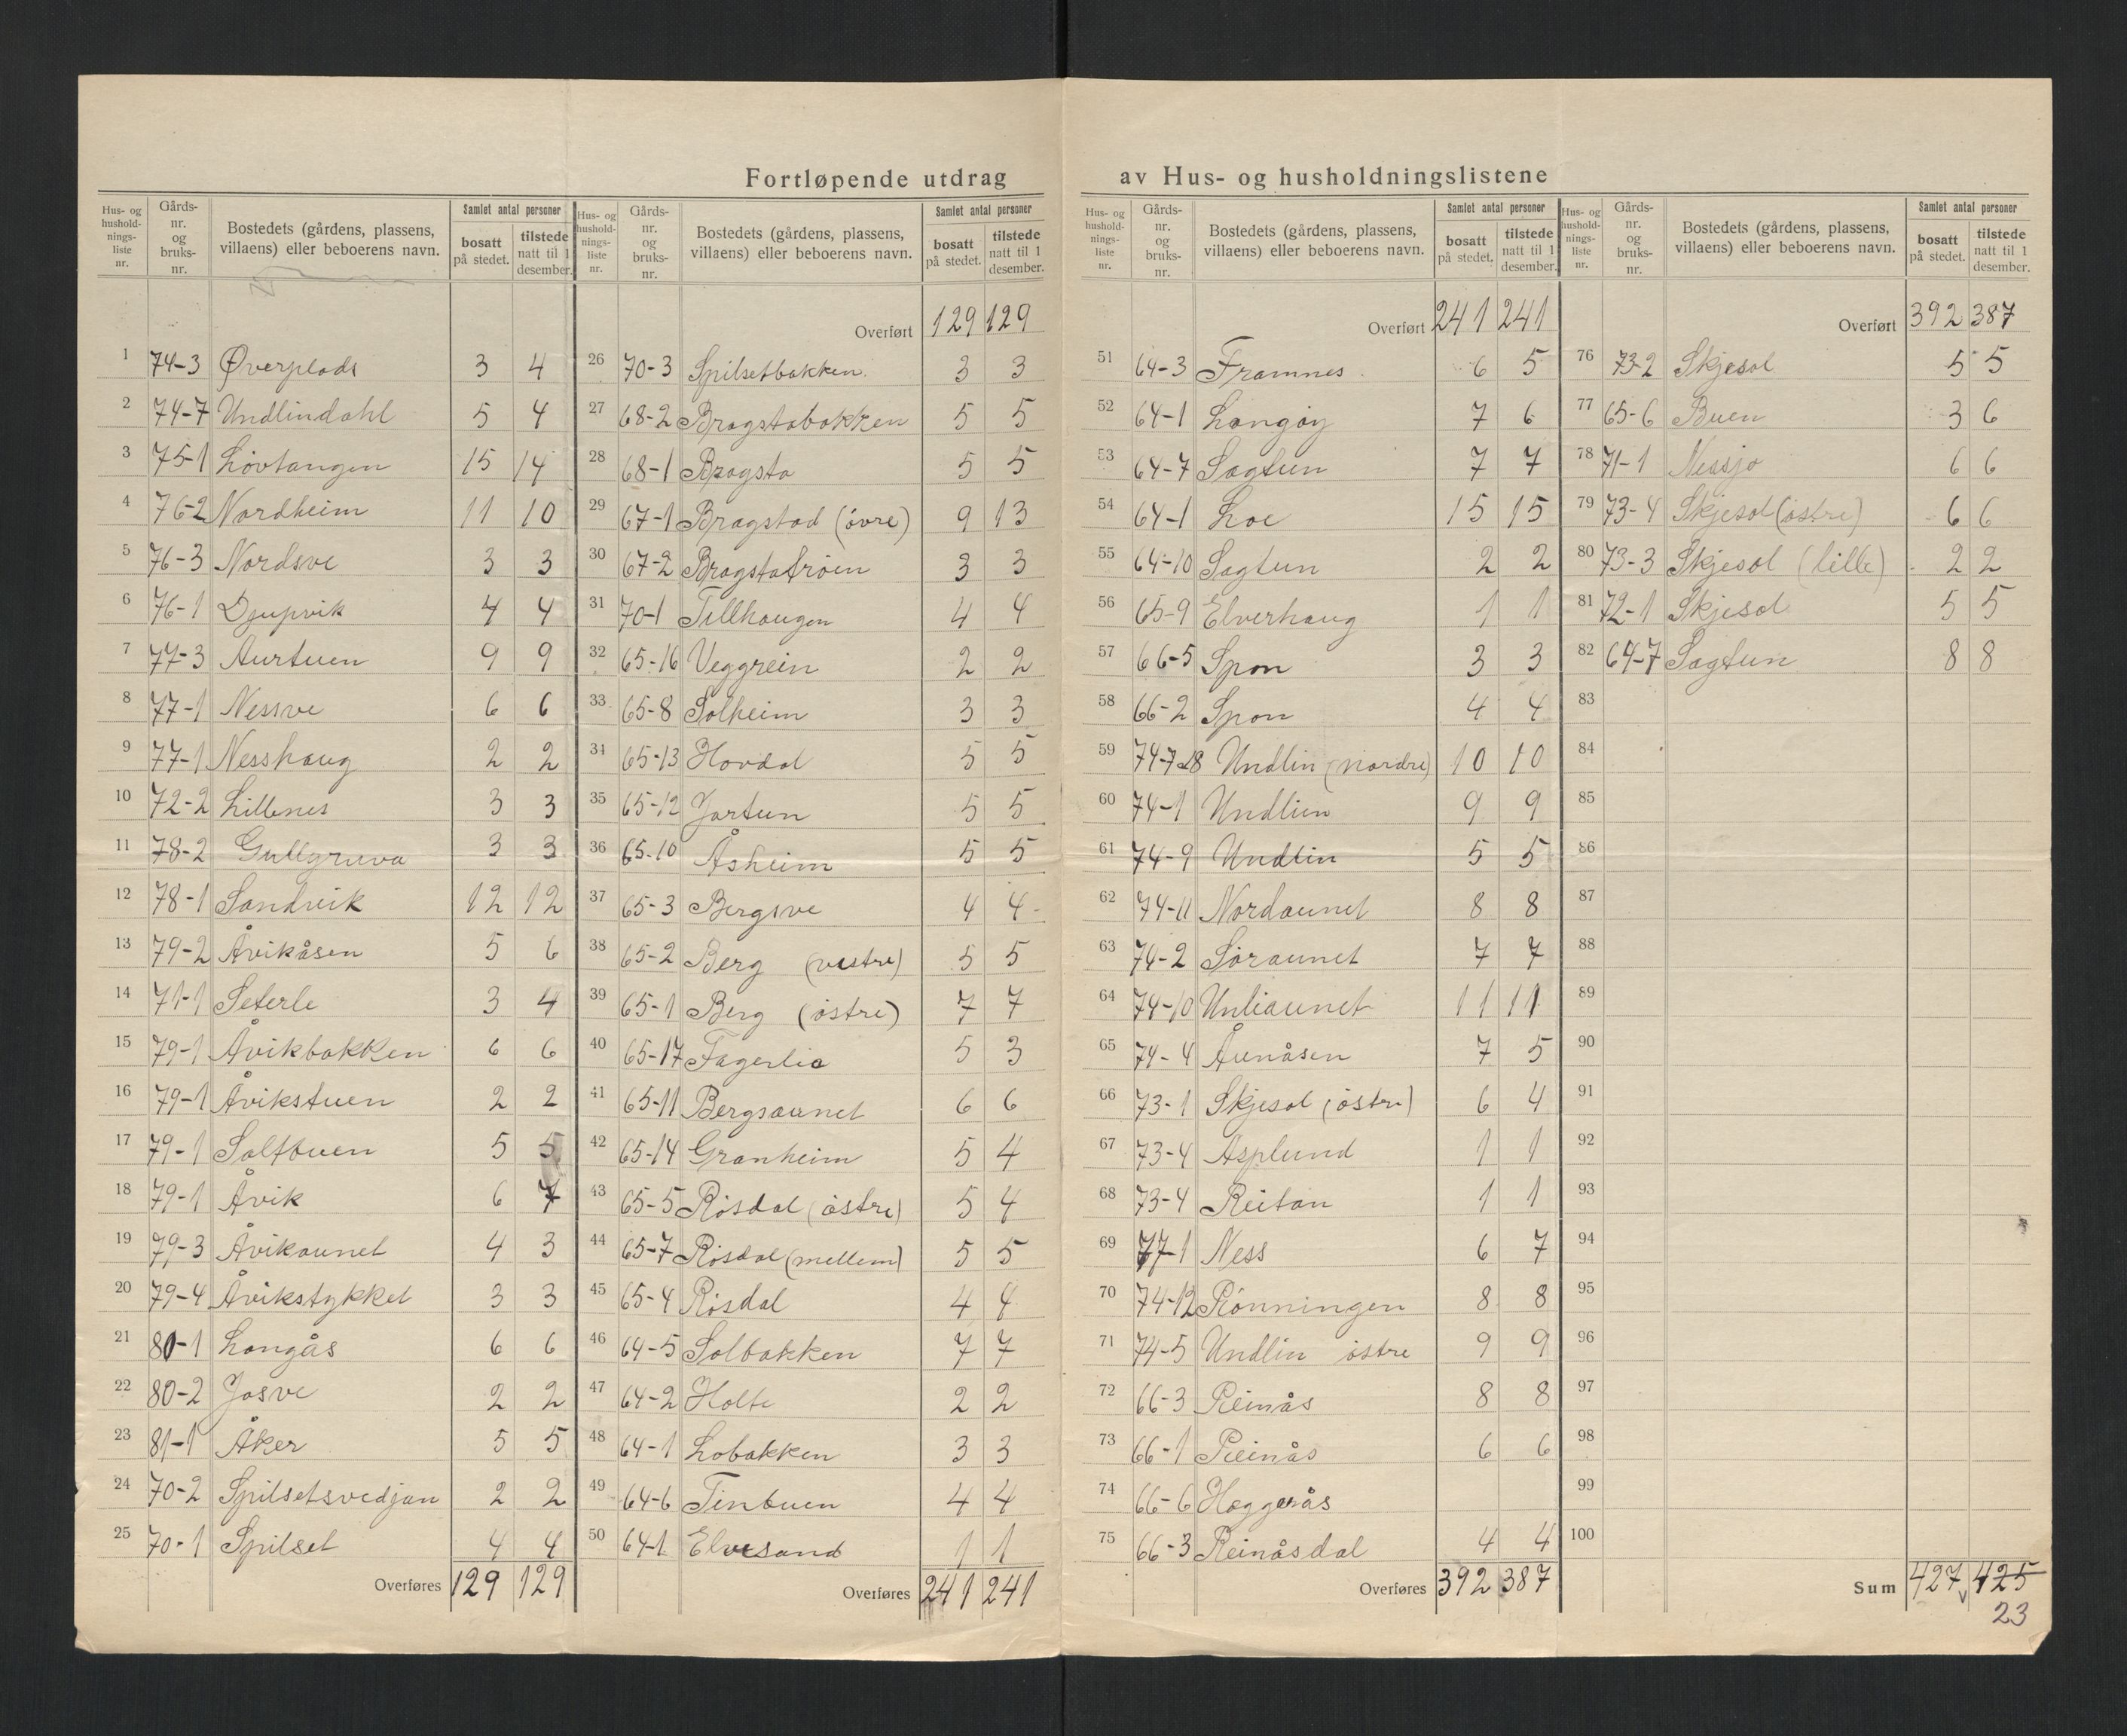 Fortløpende utdrag av Hus- og husholdningslistene
Hus- og hushold-nings-liste nr. Gårds-nr. og bruks-nr. Bostedets (gårdens, plassens, villaens) eller beboerens navn. Samlet antal personer bosatt på stedet. tilstede natt til 1 desember.
1 74-3 Øverplads 3 4
2 74-7 Undlindahl 5 4
3 75-1 Løvtangen 15 14
4 76-2 Nordheim 11 10
5 76-3 Nordsve 3 3
6 76-1 Djupvik 4 4
7 77-3 Aurtuen 9 9
8 77-1 Nessve 6 6
9 77-1 Nesshaug 2 2
10 72-2 Lillenes 3 3
11 78-2 Gullgruva 3 3
12 78-1 Sandvik 12 12
13 79-2 Åvikåsen 5 6
14 71-1 Seterle 3 4
15 79-1 Åvikbakken 6 6
16 79-1 Åvikstuen 2 2
17 79-1 Saltbuen 5 5
18 79-1 Åvik 6 7
19 79-3 Åvikaunet 4 3
20 79-4 Åvikstykket 3 3
21 80-1 Langås 6 6
22 80-2 Jasve 2 2
23 81-1 Åker 5 5
24 70-2 Spilsetsvedjan 2 2
25 70-1 Spilset 4 4
Overføres 129 129
Hus- og hushold-nings-liste nr. Gårds-nr. og bruks-nr. Bostedets (gårdens, plassens, villaens) eller beboerens navn. Samlet antal personer bosatt på stedet. tilstede natt til 1 desember.
Overført 129 129
26 70-3 Spilsetbakken 3 3
27 68-2 Bragstabakken 5 5
28 68-1 Bragsta 5 5
29 67-1 Bragstad (øvre) 9 13
30 67-2 Bragstatrøen 3 3
31 70-1 Tillhaugen 4 4
32 65-16 Veggrein 2 2
33 65-8 Solheim 3 3
34 65-13 Hovdal 5 5
35 65-12 Jartun 5 5
36 65-10 Åsheim 5 5
37 65-3 Bergsve 4 4
38 65-2 Berg (vestre) 5 5
39 65-1 Berg (østre) 7 7
40 65-17 Fagerlia 5 3
41 65-11 Bergsaunet 6 6
42 65-14 Granheim 5 4
43 65-5 Røsdal (østre) 5 4
44 65-7 Røsdal (mellem) 5 5
45 65-4 Røsdal 4 4
46 64-5 Solbakken 7 7
47 64-2 Holte 2 2
48 64-1 Lobakken 3 3
49 64-6 Tinbuen 4 4
50 64-1 Elvesand 1 1
Overføres 241 241
Hus- og hushold-nings-liste nr. Gårds-nr. og bruks-nr. Bostedets (gårdens, plassens, villaens) eller beboerens navn. Samlet antal personer bosatt på stedet. tilstede natt til 1 desember.
Overført 241 241
51 64-3 Framnes 6 5
52 64-1 Langøy 7 6
53 64-7 Sagtun 7 7
54 64-1 Loe 15 15
55 64-10 Sagtun 2 2
56 65-9 Elverhaug 1 1
57 66-5 Spon 3 3
58 66-2 Spon 4 4
59 74-7 Undlin (nordre) 10 10
60 74-1 Undlien 9 9
61 74-9 Undlin 5 5
62 74-11 Nordaunet 8 8
63 74-2 Søraunet 7 7
64 74-10 Unliaunet 11 11
65 74-4 Aunåsen 7 5
66 73-1 Skjesol (østre) 6 4
67 73-4 Asplund 1 1
68 73-4 Reitan 1 1
69 77-1 Ness 6 7
70 74-12 Rønningen 8 8
71 74-5 Undlin østre 9 9
72 66-3 Reinås 8 8
73 66-1 Reinås 6 6
74 66-6 Haggerås
75 66-3 Reinåsdal 4 4
Overføres 392 387
Hus- og hushold-nings-liste nr. Gårds-nr. og bruks-nr. Bostedets (gårdens, plassens, villaens) eller beboerens navn. Samlet antal personer bosatt på stedet. tilstede natt til 1 desember.
Overført 392 387
76 73-2 Skjesol 5 5
77 65-6 Buen 3 6
78 71-1 Nessjø 6 6
79 73-4 Skjesol (østre) 6 6
80 73-3 Skjesol (lille) 2 2
81 72-1 Skjesol 5 5
82 64-7 Sagtun 8 8
83
84
85
86
87
88
89
90
91
92
93
94
95
96
97
98
99
100
Sum 427 425
23